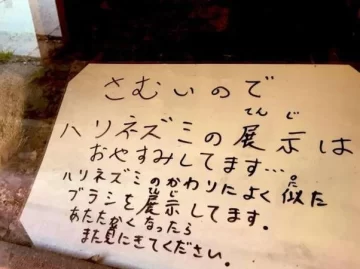 さむいので
ハリネズミの展示は
おやすみしてます…。
ハリネズミのかわりによく似た
ブラシを展示してます。
あたたかくなったら
また見にきてください。